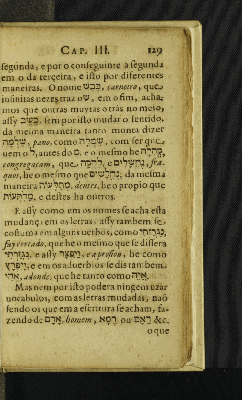 CAP. III. 129
segunda, e por o conseguinte a segunda
em o da terçeira, e isto por diferentes
maneiras. O nome כֶּבֶשׂ, carneiro, que
infinitas vezes tras o שׂ, em o fim, acha-
mos que outras muytas o trás no meto,
assy כֶּשֶׂב, sem por isto mudar o sentido,
da mesma maneira tanto monta dizer
שִׂמְלָה, pano, como שַׂלְמָה, com ser que
uem o ל, antes do מ. e o mesmo he
congregacam, que
quos, he o mesmo que נֶחֱשָׁלִים; da mesma
maneira dentes, he o propio que
e destes ha outros.
E assy como em os nomes se acha esta
mudança em os letras: assy tambem se
costuma em alguns uerbos, como נִגְרַזְתִּי,
fuy cortado, que he o mesmo que se disera
נִגְזַרְתִּי, e assy וַיִּפְצַר, e aprofiou, he como
וַיִּפְרָץ, e em os aduerbios se dis tambem
אַיֵּה, adonde, que he tanto como
Mas nem por isto podera ningem uzar
uocabulos, com as letras mudadas, não
sendo os que em a escritura se acham, fa-
zendo de אָדָם, homem, ou &c.
o que